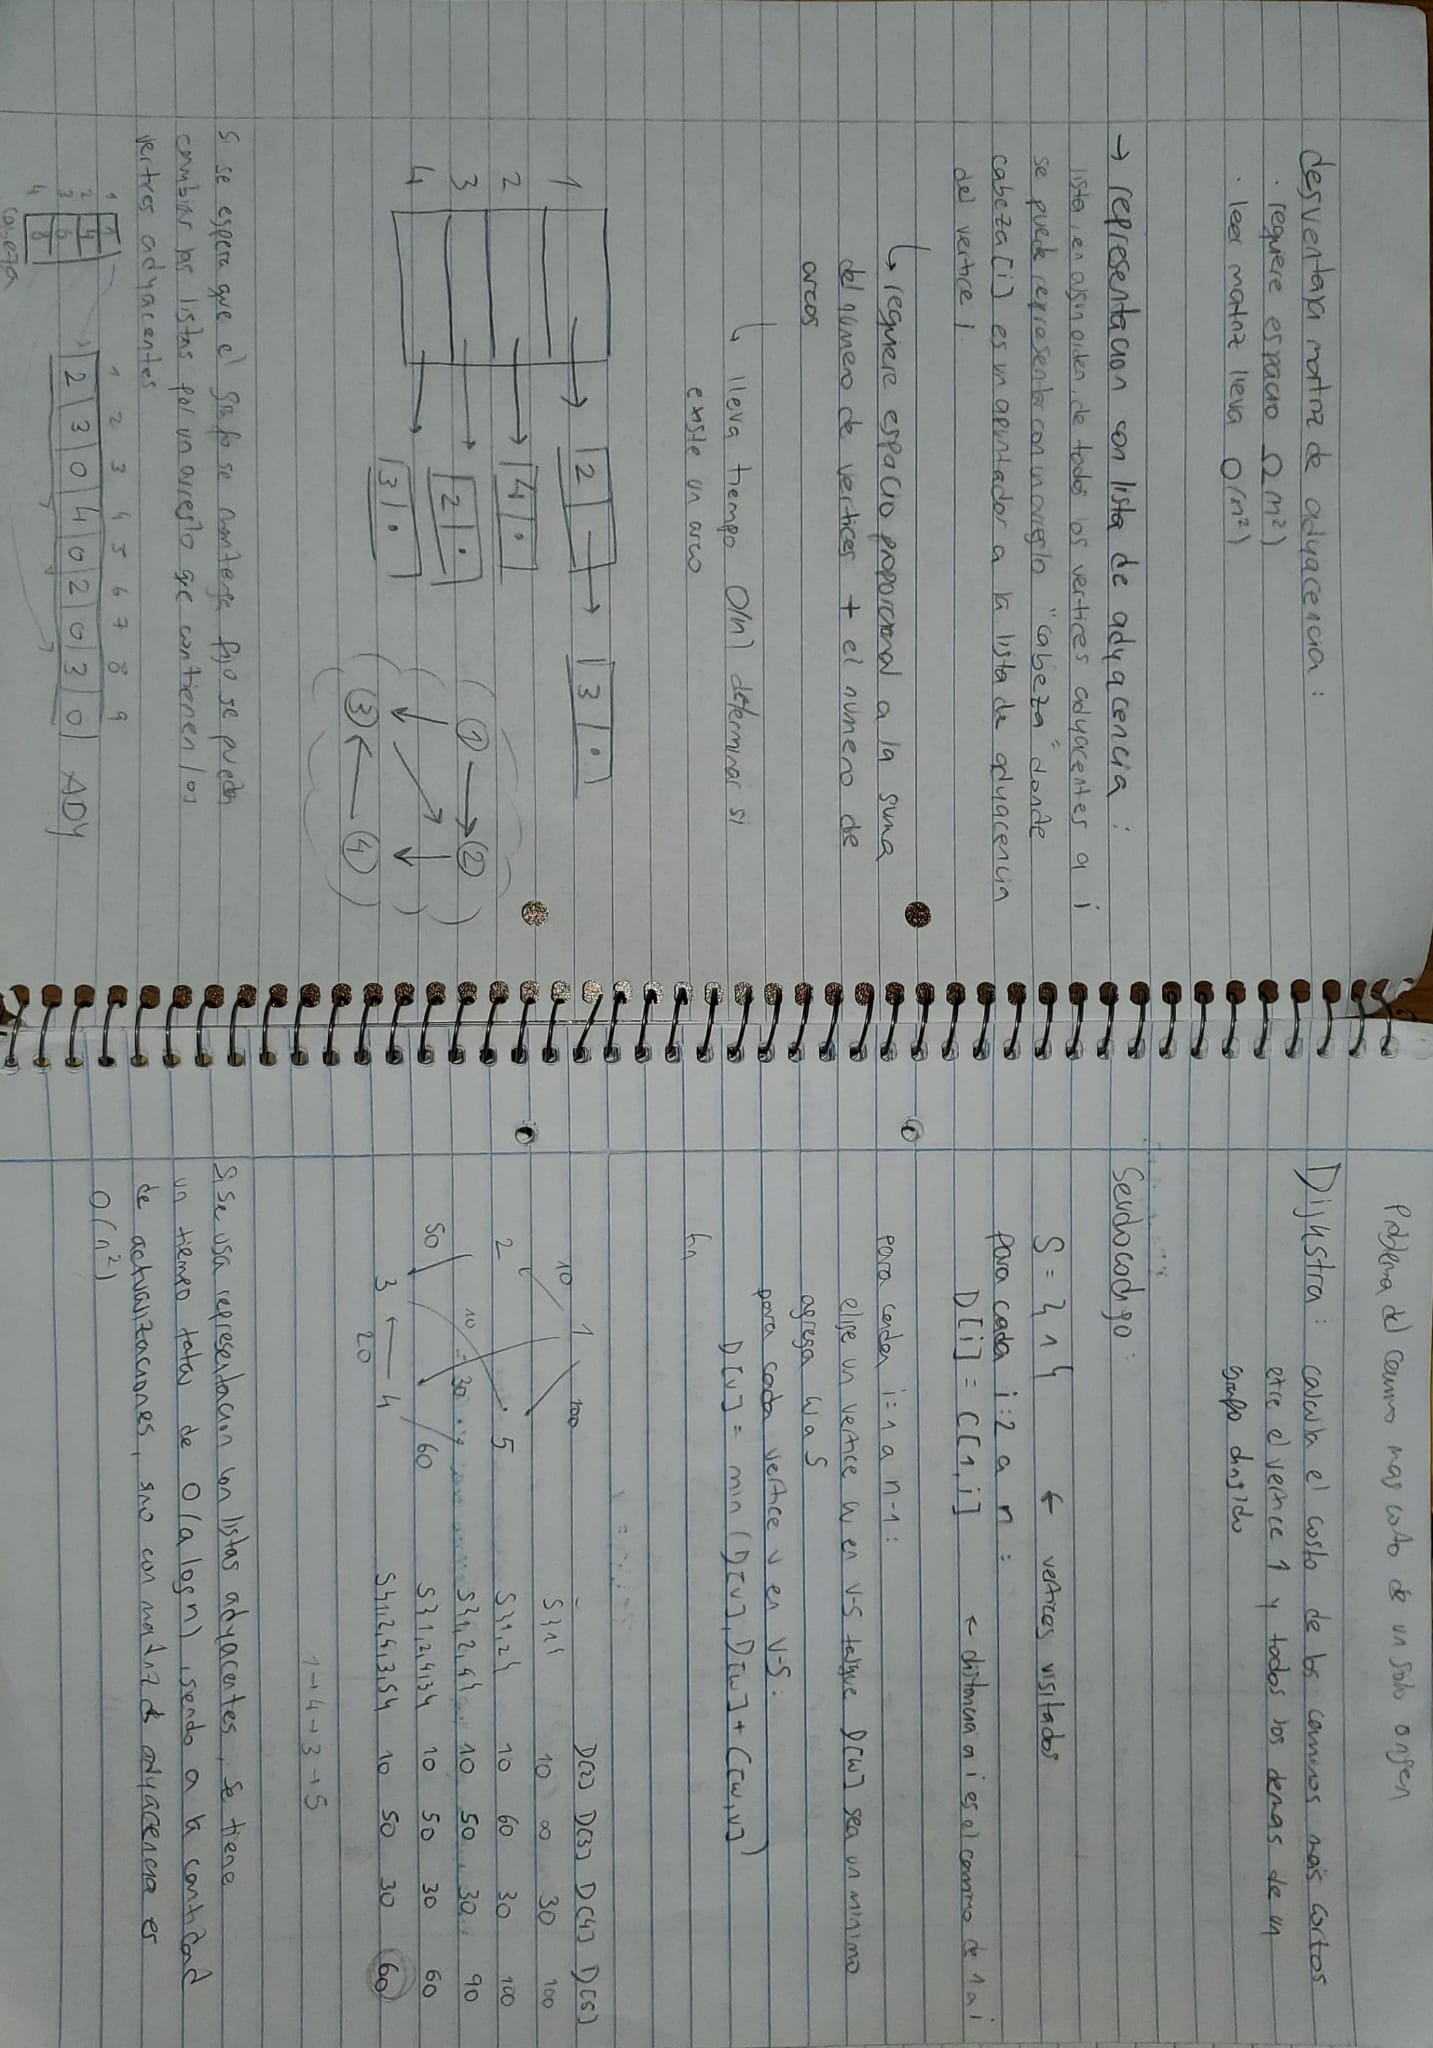 desventaja matriz de adyacencia:
· requiere espacio Ω(n²)
· leer matriz lleva O(n²)
→ representacion con lista de adyacencia:
lista, en algun orden, de todos los vertices adyacentes a i
se puede representar con un arreglo "cabeza" donde
cabeza[i] es un apuntador a la lista de adyacencia
del vertice i
↳ requiere espacio proporcional a la suma
del número de vertices + el número de
arcos
↳ lleva tiempo O(n) determinar si
existe un arco
1 → 2 → 3 ·
2 → 4 ·
3 → 2 ·
4 → 3 ·
1 → 2
3 ← 4
Si se espera que el grafo se mantenga fijo se pueden
cambiar las listas por un arreglo que contienen los
vertices adyacentes
1 2 3 4 5 6 7 8 9
2 3 0 4 0 2 0 3 0 ADY
1 1
2 4
3 6
4 8
cabeza
Problema del camino mas corto de un solo origen
Dijkstra: calcula el costo de los caminos más cortos
etre el vertice 1 y todos los demas de un
grafo dirigido
Seudocodigo:
S = {1} ← vertices visitados
para cada i:2 a n:
D[i] = C[1,i] ← distancia a i es el camino de 1 a i
para cada i=1 a n-1:
elige un vertice w en V-S talque D[w] sea un minimo
agrega w a S
para cada vertice v en V-S:
D[v] = min(D[v], D[w] + C[w,v])
fin
1
10 100
2 5
10 30
50 60
3 ← 4
20
D[2] D[3] D[4] D[5]
S{1} 10 ∞ 30 100
S{1,2} 10 60 30 100
S{1,2,4} 10 50 30 90
S{1,2,4,3} 10 50 30 60
S{1,2,4,3,5} 10 50 30 60
1→4→3→5
Si se usa representacion con listas adyacentes, se tiene
un tiempo total de O(a log n), siendo a la cantidad
de actualizaciones, sino con matriz de adyacencia es
O(n²)